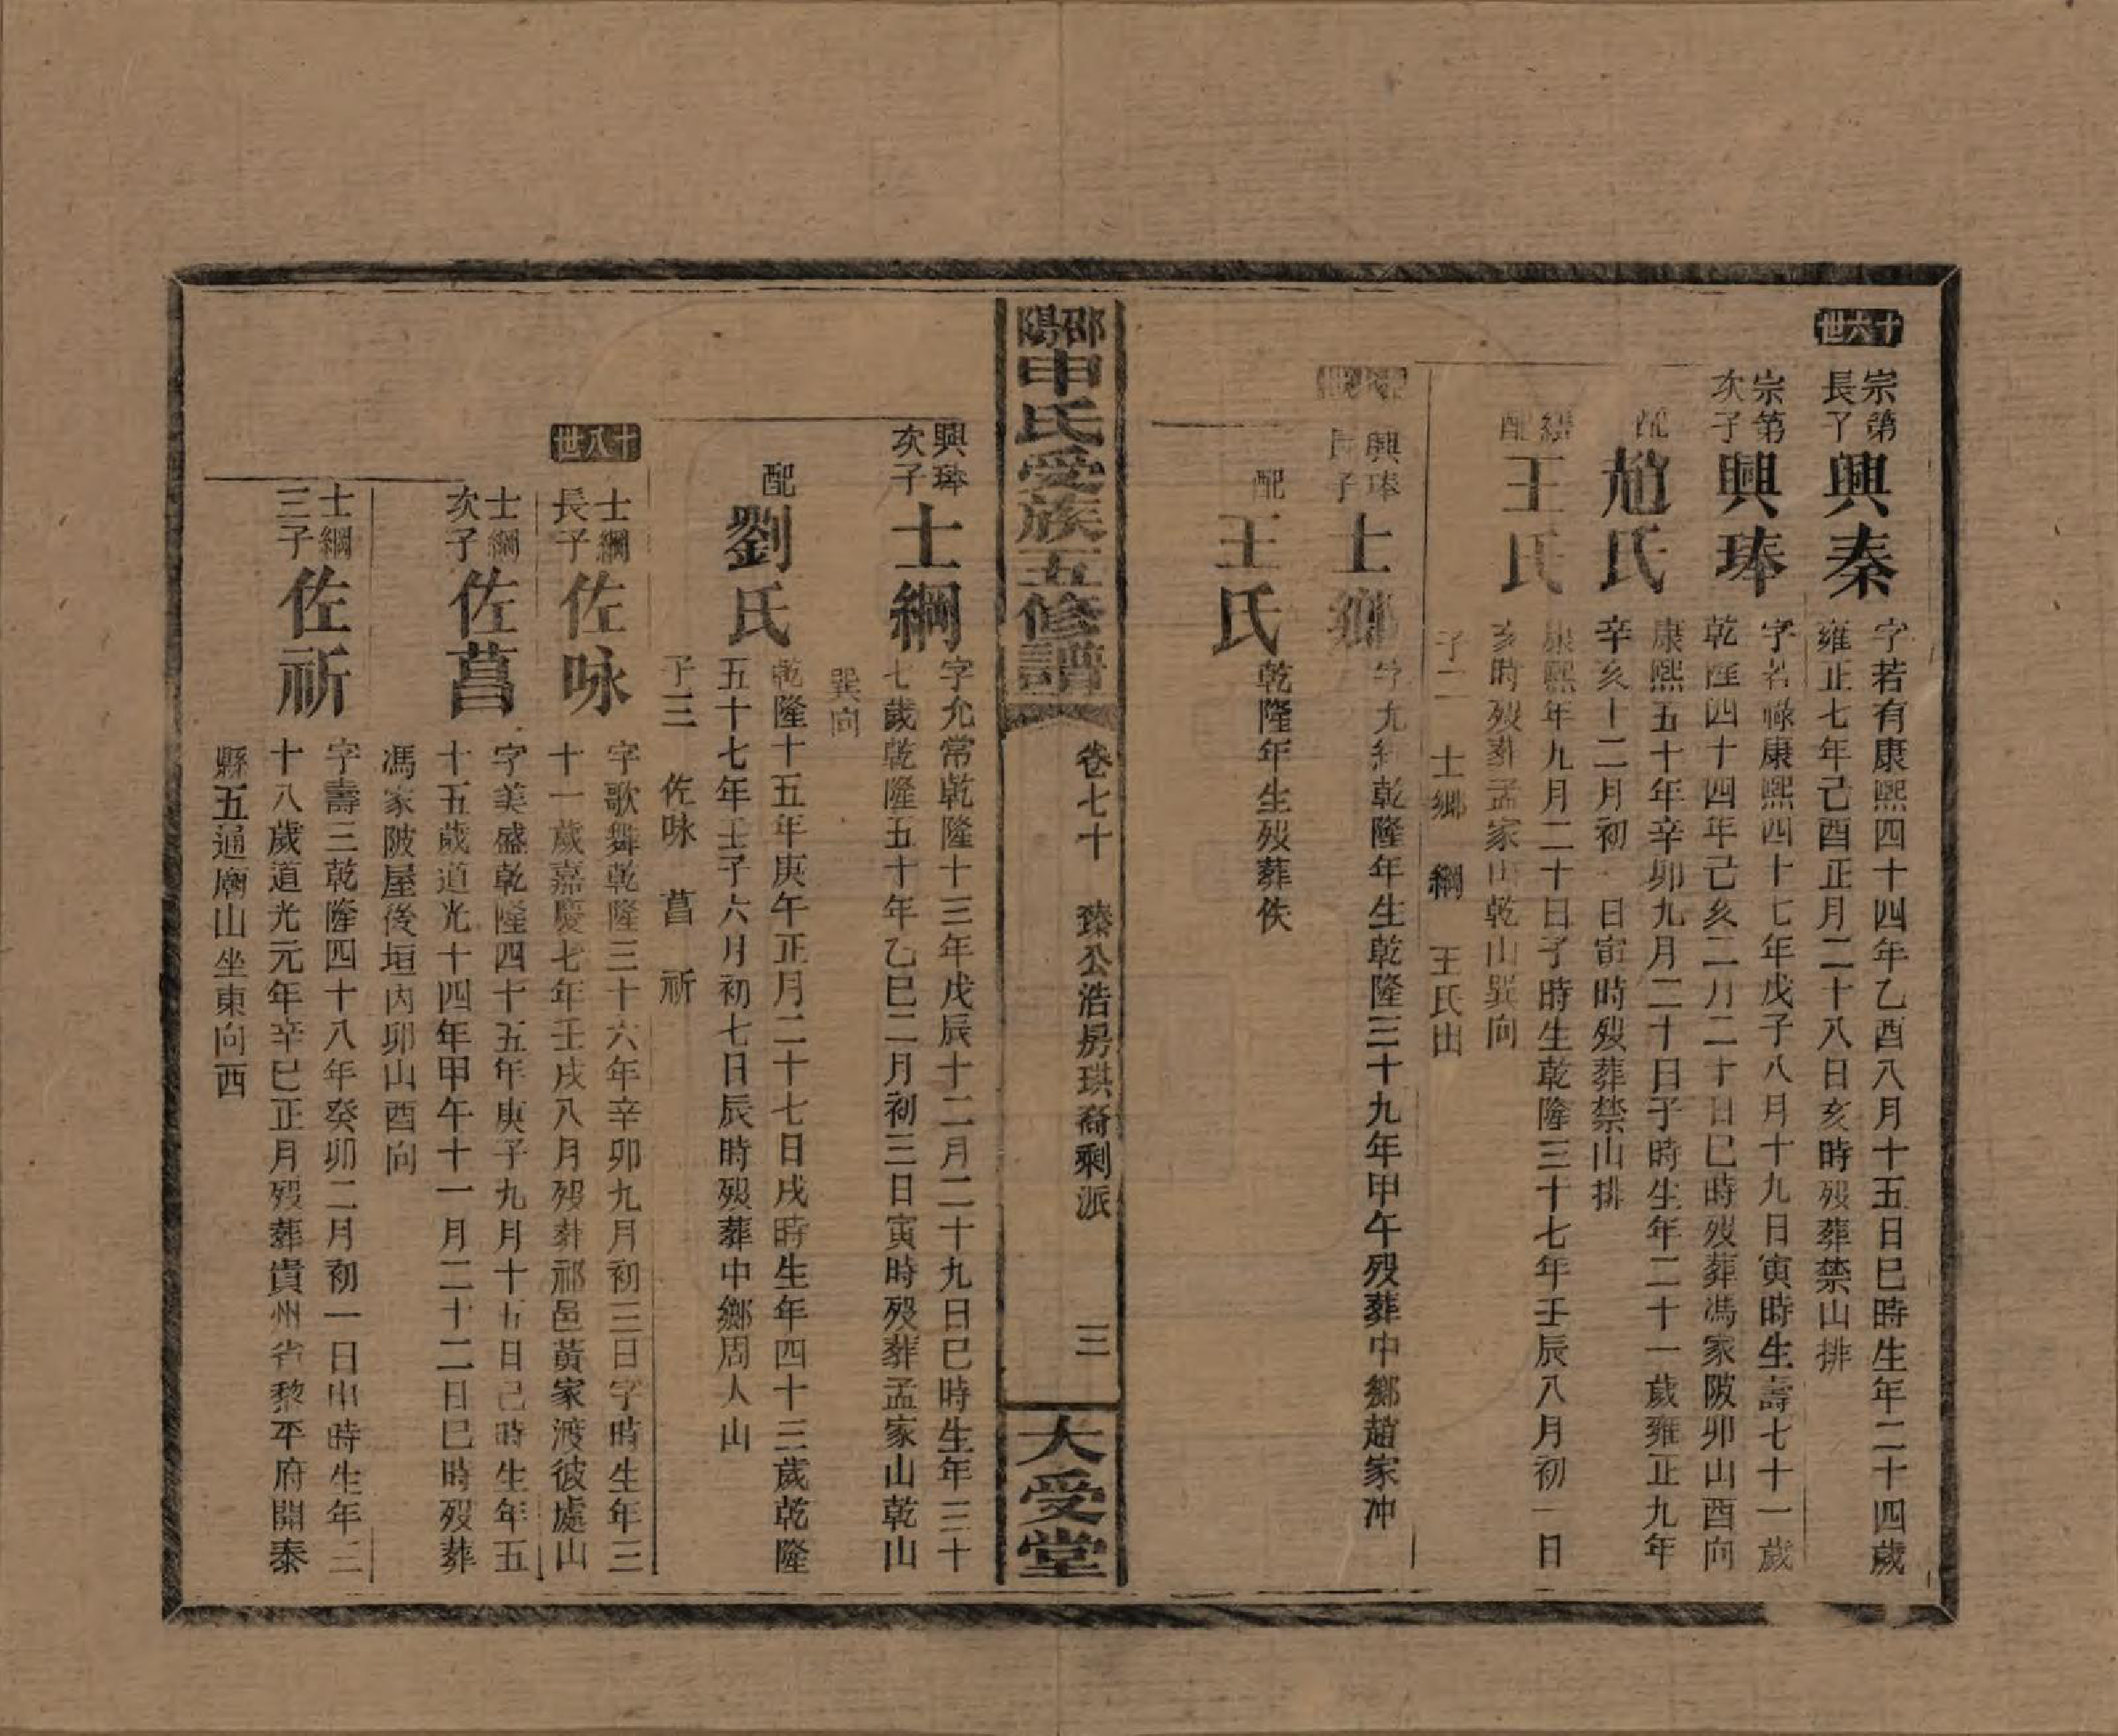 十六世
宗第長子 興秦
字若有康熙四十四年乙酉八月十五日巳時生年二十四歲
雍正七年己酉正月二十八日亥時歿葬禁山排
宗第次子 興琫
字若祿康熙四十七年戊子八月十九日寅時生壽七十一歲
乾隆四十四年己亥二月二十日巳時歿葬馮家陂卯山酉向
配 趙氏
康熙五十年辛卯九月二十日子時生年二十一歲雍正九年
辛亥十二月初一日寅時歿葬禁山排
繼配 王氏
康熙年九月二十日子時生乾隆三十七年壬辰八月初一日
亥時歿葬孟家山乾山巽向
子二 士鄉 綱 王氏出
興琫長子 士鄉
字九 乾隆年生乾隆三十九年甲午歿葬中鄉趙家冲
配 王氏
乾隆年生歿葬佚
邵陽申氏受族五修譜 卷七十 臻公浩房琪裔剩派 三 大受堂
興琫次子 士綱
字允常乾隆十三年戊辰十二月二十九日巳時生年三十
七歲乾隆五十年乙巳二月初三日寅時歿葬孟家山乾山
巽向
配 劉氏
乾隆十五年庚午正月二十七日戌時生年四十三歲乾隆
五十七年壬子六月初七日辰時歿葬中鄉周人山
子三 佐咏 菖 祈
十八世
士綱長子 佐咏
字歌舞乾隆三十六年辛卯九月初三日字時生年三
十一歲嘉慶七年壬戌八月歿葬祁邑黃家渡彼處山
士綱次子 佐菖
字美盛乾隆四十五年庚子九月十五日己時生年五
十五歲道光十四年甲午十一月二十二日巳時歿葬
馮家陂屋後垣內卯山酉向
士綱三子 佐祈
字壽三乾隆四十八年癸卯二月初一日申時生年三
十八歲道光元年辛巳正月歿葬貴州省黎平府開泰
縣五通廟山坐東向西